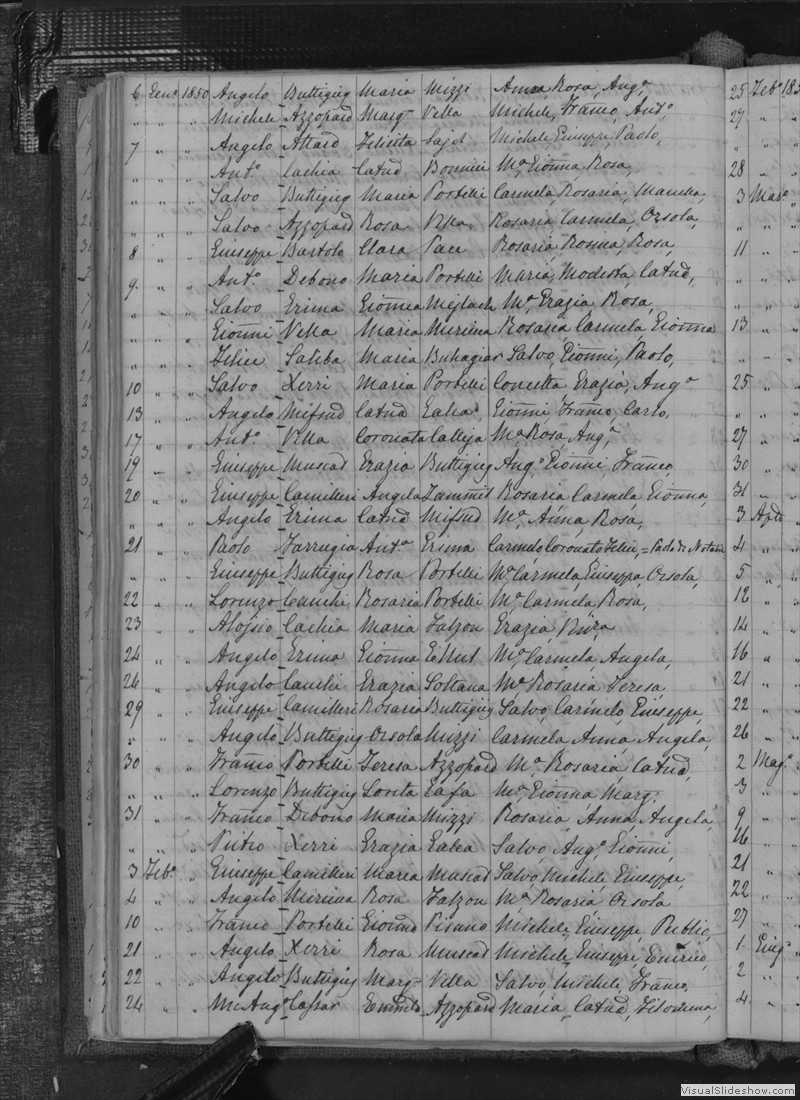 6 Gen.o 1850 Angelo Buttigieg Maria Mizzi Anna Rosa, Ang.a 25 Feb.o 185
" " " Michele Azzopard Marg. Vella Michele, Franco Ant.o, 27 "
7 " " Angelo Attard Felicita Sajd Michele Giuseppe, Paolo, " "
" " " Ant.o Cachia Catnd Bonnici M.a Gionna Rosa, 28 "
" " " Salvo Buttigieg Maria Portelli Carmela, Rosaria, 3 Marzo "
" " " Salvo Azzopard Rosa Vella Rosaria Carmela, Orsola, " "
8 " " Giuseppe Bartolo Clara Pace Rosaria, Rosina Rosa, 11 "
9 " " Ant.o Debono Maria Portelli Maria, Modesta, Catnd, " "
" " " Salvo Grima Gionna Mejlach M.a Grazia Rosa, " "
" " " Gionni Vella Maria Mercieca Rosaria Carmela Gionna 13 "
" " " Felice Saliba Maria Buhagiar Salvo, Gionni, Paolo, " "
10 " " Salvo Xerri Maria Portelli Concetta Grazia, Ang.a 25 "
13 " " Angelo Mifsud Catnd Galea Gionni Franco Carlo, " "
17 " " Ant.o Vella Coronata Calleja M.a Rosa Ang.a 27 "
19 " " Giuseppe Muscad Grazia Buttigieg Ang.o Gionni Franco, 30 "
20 " " Giuseppe Camilleri Angela Zammit Rosaria Carmela, Gionna, 31 "
" " " Angelo Grima Catnd Mifsud M.a Anna, Rosa, 3 Aple "
21 " " Paolo Farrugia Ant.a Grima Carmelo Coronato Felice, = 4 "
" " " Giuseppe Buttigieg Rosa Portelli M.a Carmela Giuseppa, Orsola, 5 "
22 " " Lorenzo Cauchi Rosaria Portelli M.a Carmela Rosa, 12 "
23 " " Alojsio Cachia Maria Falzon Grazia 14 "
24 " " Angelo Grima Gionna M.a Carmela, Angela, 16 "
26 " " Angelo Cauchi Grazia Soltana M.a Rosaria Teresa, 21 "
29 " " Giuseppe Camilleri Rosaria Buttigieg Salvo, Carmelo, Giuseppe, 22 "
" " " Angelo Buttigieg Orsola Mizzi Carmela Anna, Angela, 26 "
30 " " Franco Portelli Teresa Azzopard M.a Rosaria, Catnd, 2 Mag.o "
" " " Lorenzo Buttigieg Loreta Gafa M.a Gionna Marg. 3 "
31 " " Franco Debono Maria Mizzi Rosaria, Anna Angela, 9 "
" " " Pietro Xerri Grazia Galea Salvo, Ang.o Gionni, 16 "
3 Feb.o " Giuseppe Camilleri Maria Muscad Salvo, Michele, Giuseppe, 21 "
4 " " Angelo Mercieca Rosa Falzon M.a Rosaria Orsola 22 "
10 " " Franco Portelli Gionnd Pisano Michele, Giuseppe, Publio, 27 "
21 " " Angelo Xerri Rosa Muscad Michele, Giuseppe, Enrico, 1 Giug.o "
22 " " Angelo Buttigieg Marg. Vella Salvo, Michele, Franco, 2 "
24 " " Mic Ang.o Cassar Azzopard Maria, Catnd, Filomena, 4 "
VisualSlideshow.com